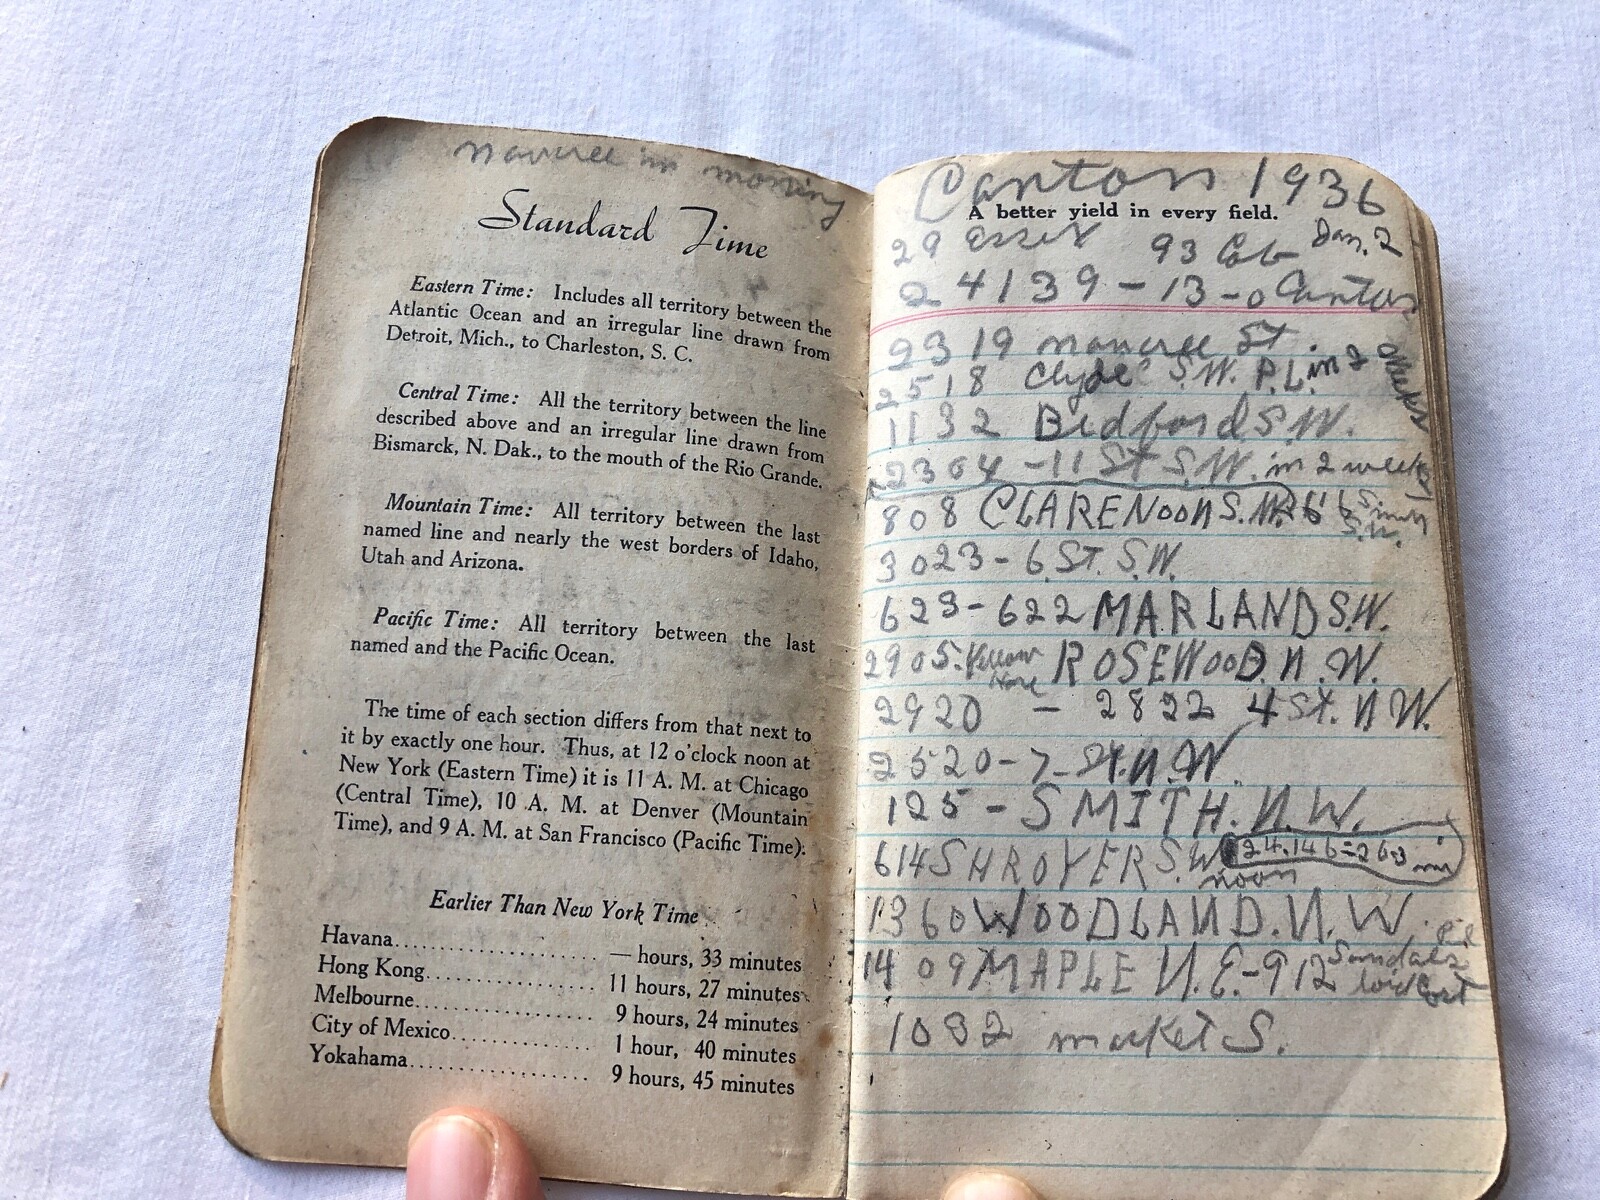 in morning
Standard Time
Eastern Time: Includes all territory between the
Atlantic Ocean and an irregular line drawn from
Detroit, Mich., to Charleston, S. C.
Central Time: All the territory between the line
described above and an irregular line drawn from
Bismarck, N. Dak., to the mouth of the Rio Grande.
Mountain Time: All territory between the last
named line and nearly the west borders of Idaho,
Utah and Arizona.
Pacific Time: All territory between the last
named and the Pacific Ocean.
The time of each section differs from that next to
it by exactly one hour. Thus, at 12 o'clock noon at
New York (Eastern Time) it is 11 A. M. at Chicago
(Central Time), 10 A. M. at Denver (Mountain
Time), and 9 A. M. at San Francisco (Pacific Time).
Earlier Than New York Time
Havana.................... — hours, 33 minutes
Hong Kong................ 11 hours, 27 minutes
Melbourne................ 9 hours, 24 minutes
City of Mexico............. 1 hour, 40 minutes
Yokahama................. 9 hours, 45 minutes
Canton 1936
A better yield in every field.
29 Essex 93 Cab Jan. 2
24139-13-0 Canton
2319 St.
2518 Clyde S.W. P.L. in 2 weeks
1132 Bedford S.W.
2304-11 St S.W. in 2 weeks
808 CLARENDON S.W.
S.W.
3023-6 St. S.W.
623-622 MARLAND S.W.
2905. Yellow ROSEWOOD. N.W.
2920 - 2822 4 St. N W.
2520-7 St. N.W.
125-SMITH. N.W.
614 SHROYER S.W. 24.146=263 mi
noon
1360 WOODLAND. N.W.
1409 MAPLE N.E.-912 Sandals
1032 market S.